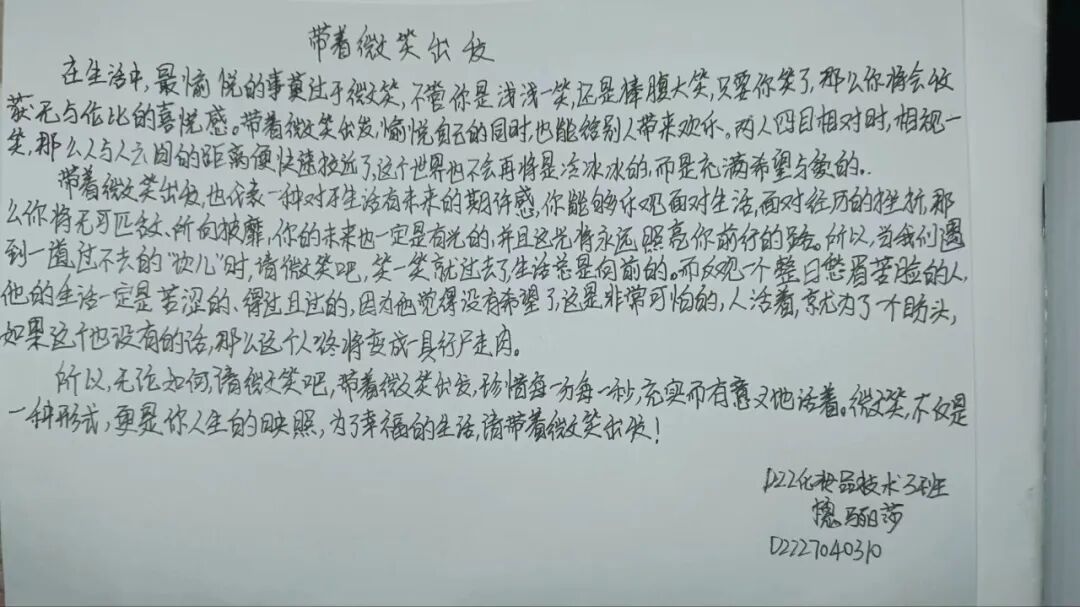 带着微笑出发
在生活中,最愉悦的事莫过于微笑,不管你是浅浅一笑,还是捧腹大笑,只要你笑了,那么你将会收
获无与伦比的喜悦感。带着微笑出发,愉悦自己的同时,也能给别人带来欢乐。两人四目相对时,相视一
笑,那么人与人之间的距离便快速拉近了,这个世界也不会再将是冷冰冰的,而是充满希望与爱的。
带着微笑出发,也代表一种对于生活有未来的期许感,你能够乐观面对生活,面对经历的挫折,那
么你将无可匹敌、所向披靡,你的未来也一定是有光的,并且这光将永远照亮你前行的路。所以,当我们遇
到一道过不去的“坎儿”时,请微笑吧,笑一笑就过去了,生活总是向前的。而反观一个整日愁眉苦脸的人,
他的生活一定是苦涩的、得过且过的,因为他觉得没有希望了,这是非常可怕的,人活着,就为了一个盼头,
如果这个也没有的话,那么这个人终将变成一具行尸走肉。
所以,无论如何,请微笑吧,带着微笑出发,珍惜每一分每一秒,充实而有意义地活着。微笑,不仅是
一种形式,更是你人生的映照,为了幸福的生活,请带着微笑出发!
D22化妆品技术3班
丽莎
D2227040310